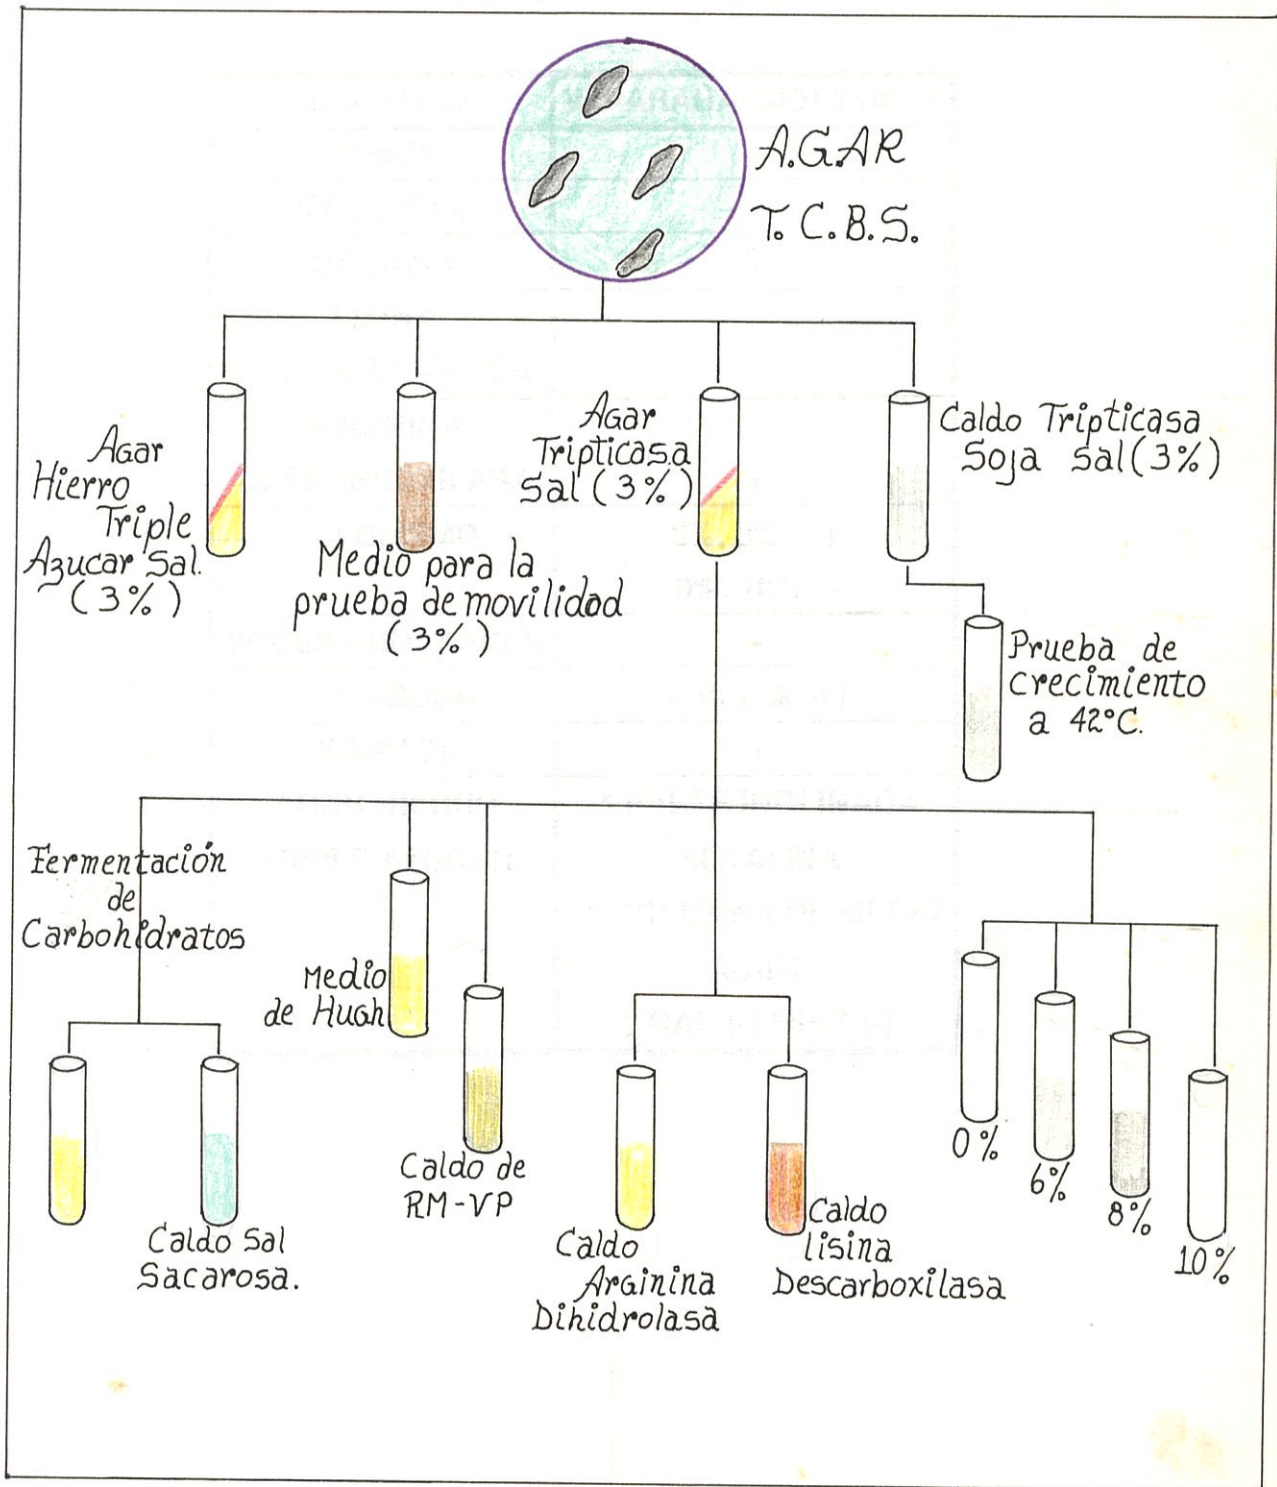 A.G.A.R
T.C.B.S.
Agar
Hierro
Triple
Azucar Sal.
(3%)
Medio para la
prueba de movilidad
(3%)
Agar
Tripticasa
Sal (3%)
Caldo Tripticasa
Soja Sal (3%)
Prueba de
crecimiento
a 42°C.
Fermentación
de
Carbohidratos
Medio
de Hugh
Caldo Sal
Sacarosa.
Caldo de
RM-VP
Caldo
Arginina
Dihidrolasa
Caldo
lisina
Descarboxilasa
0%
6%
8%
10%